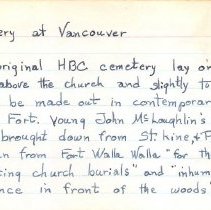 ery at Vancouver
original HBC cemetery lay on
above the church and slightly to
be made out in contemporar
Fort. Young John McLoughlin's
brought down from St hine, & P
n from Fort Walla Walla "for th
ing church burials" and "inhum
nce in front of the woods